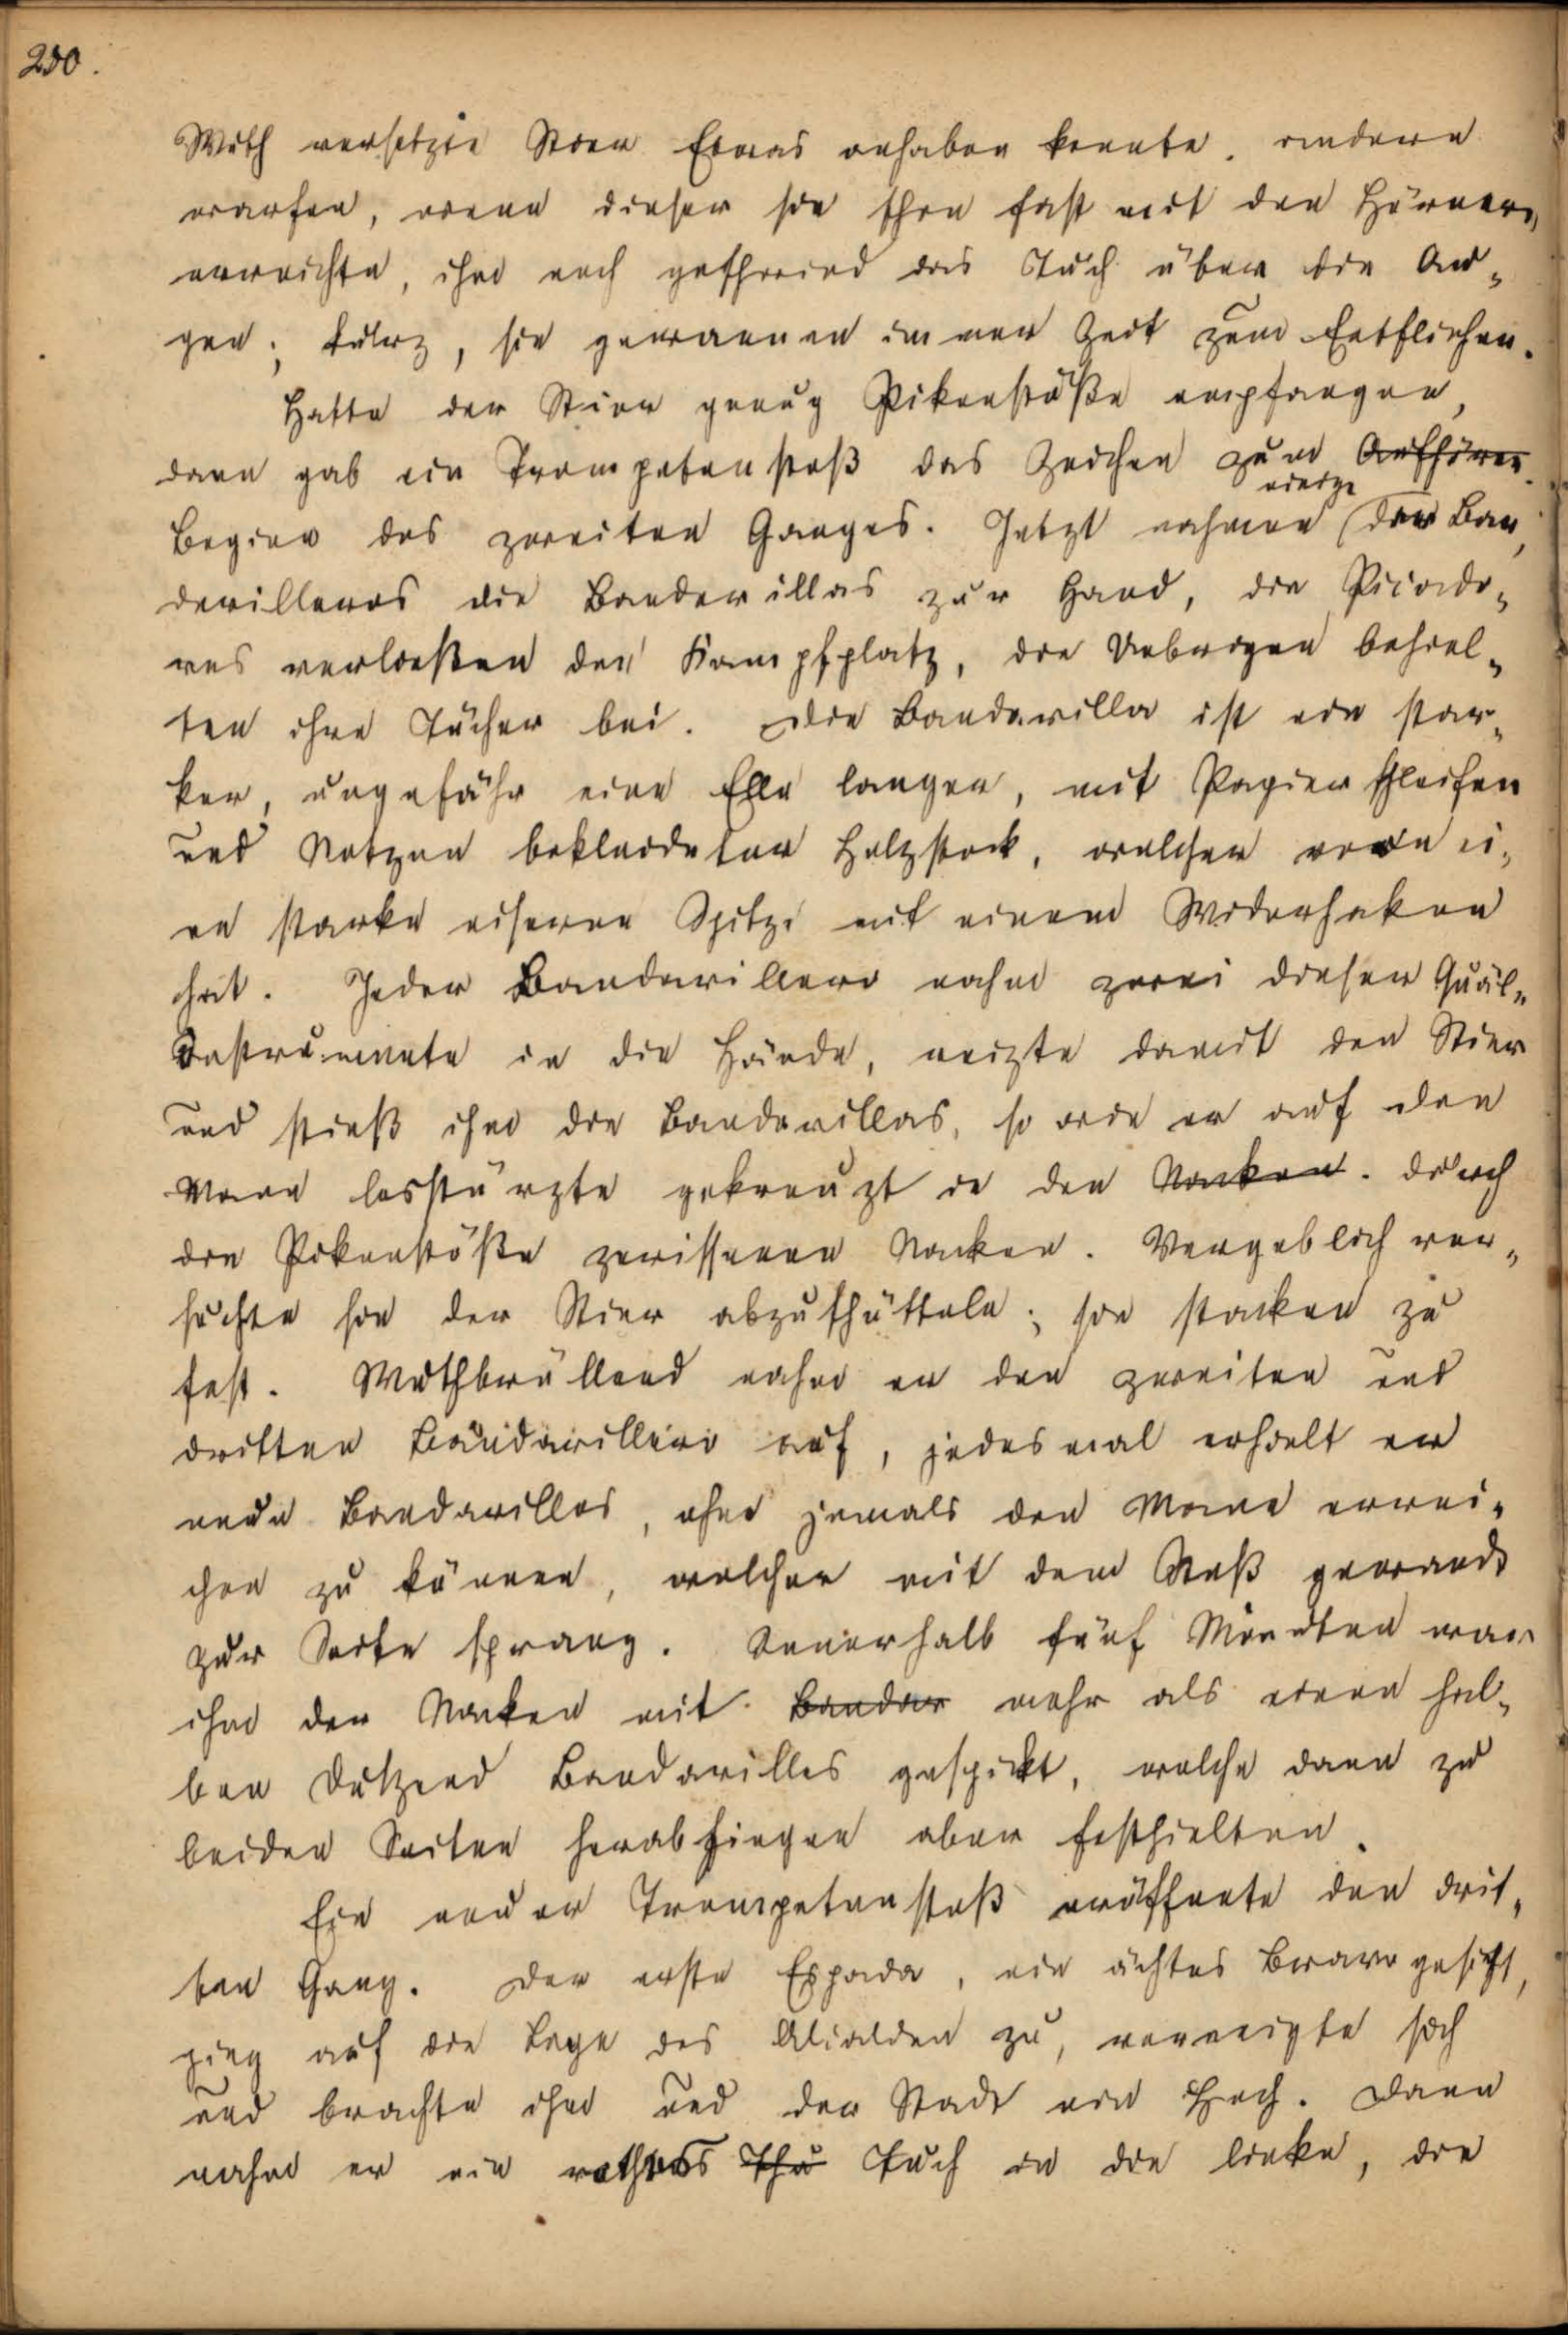 250.
Wuth versetzte Stier Etwas anhaben konnte. andere
warfen, wenn dieser sie schon fast mit den Hörnern
erreichte, ihm noch geschwind das Tuch über die Au-
gen; kurz, sie gewannen immer Zeit zum Entfliehen.
Hatte der Stier genug Pikenstöße empfangen,
dann gab ein Trompetenstoß das Zeichen zum Aufhören
einige
Beginn des zweiten Ganges. Jetzt nahmen der Ban-
derilleros die Banderillas zur Hand, die Picado-
res verließen den Kampfplatz, die Uebrigen behiel-
ten ihre Tücher bei. Die Banderilla ist ein star-
ker, ungefähr eine Elle langer, mit Papierschleifen
und Netzen bekleideter Holzstock, welcher vorn ei-
ne starke eiserne Spitze mit einem Widerhaken
hat. Jeder Banderillero nahm zwei dieser Quäl-
Instrumente in die Hände, reizte damit den Stier
und stieß ihm die Banderillas, so wie er auf den
Mann losstürzte gekreuzt in den Nacken. durch
die Pikenstöße zerissenen Nacken. Vergeblich ver-
suchte sie der Stier abzuschütteln; sie stacken zu
fest. Wuthbrüllend nahm er den zweiten und
dritten Banderillero auf, jedesmal erhielt er
neue Banderillas, ohne jemals den Mann errei-
chen zu können, welcher mit dem Stoß gewandt
zur Seite sprang. Innerhalb fünf Minuten war
ihm der Nacken mit Bander mehr als einem hal-
ben Dutzend Banderilles gespickt, welche dann zu
beiden Seiten herabhingen aber festhielten.
Ein neuer Trompetenstoß eröffnete den drit-
ten Gang. Der erste Espada, ein ächtes Bravogesicht,
ging auf die Loge des Alcalden zu, verneigte sich
und brachte ihm und der Stadt ein Hoch. Dann
nahm er ein rothes Thu Tuch in die linke, die